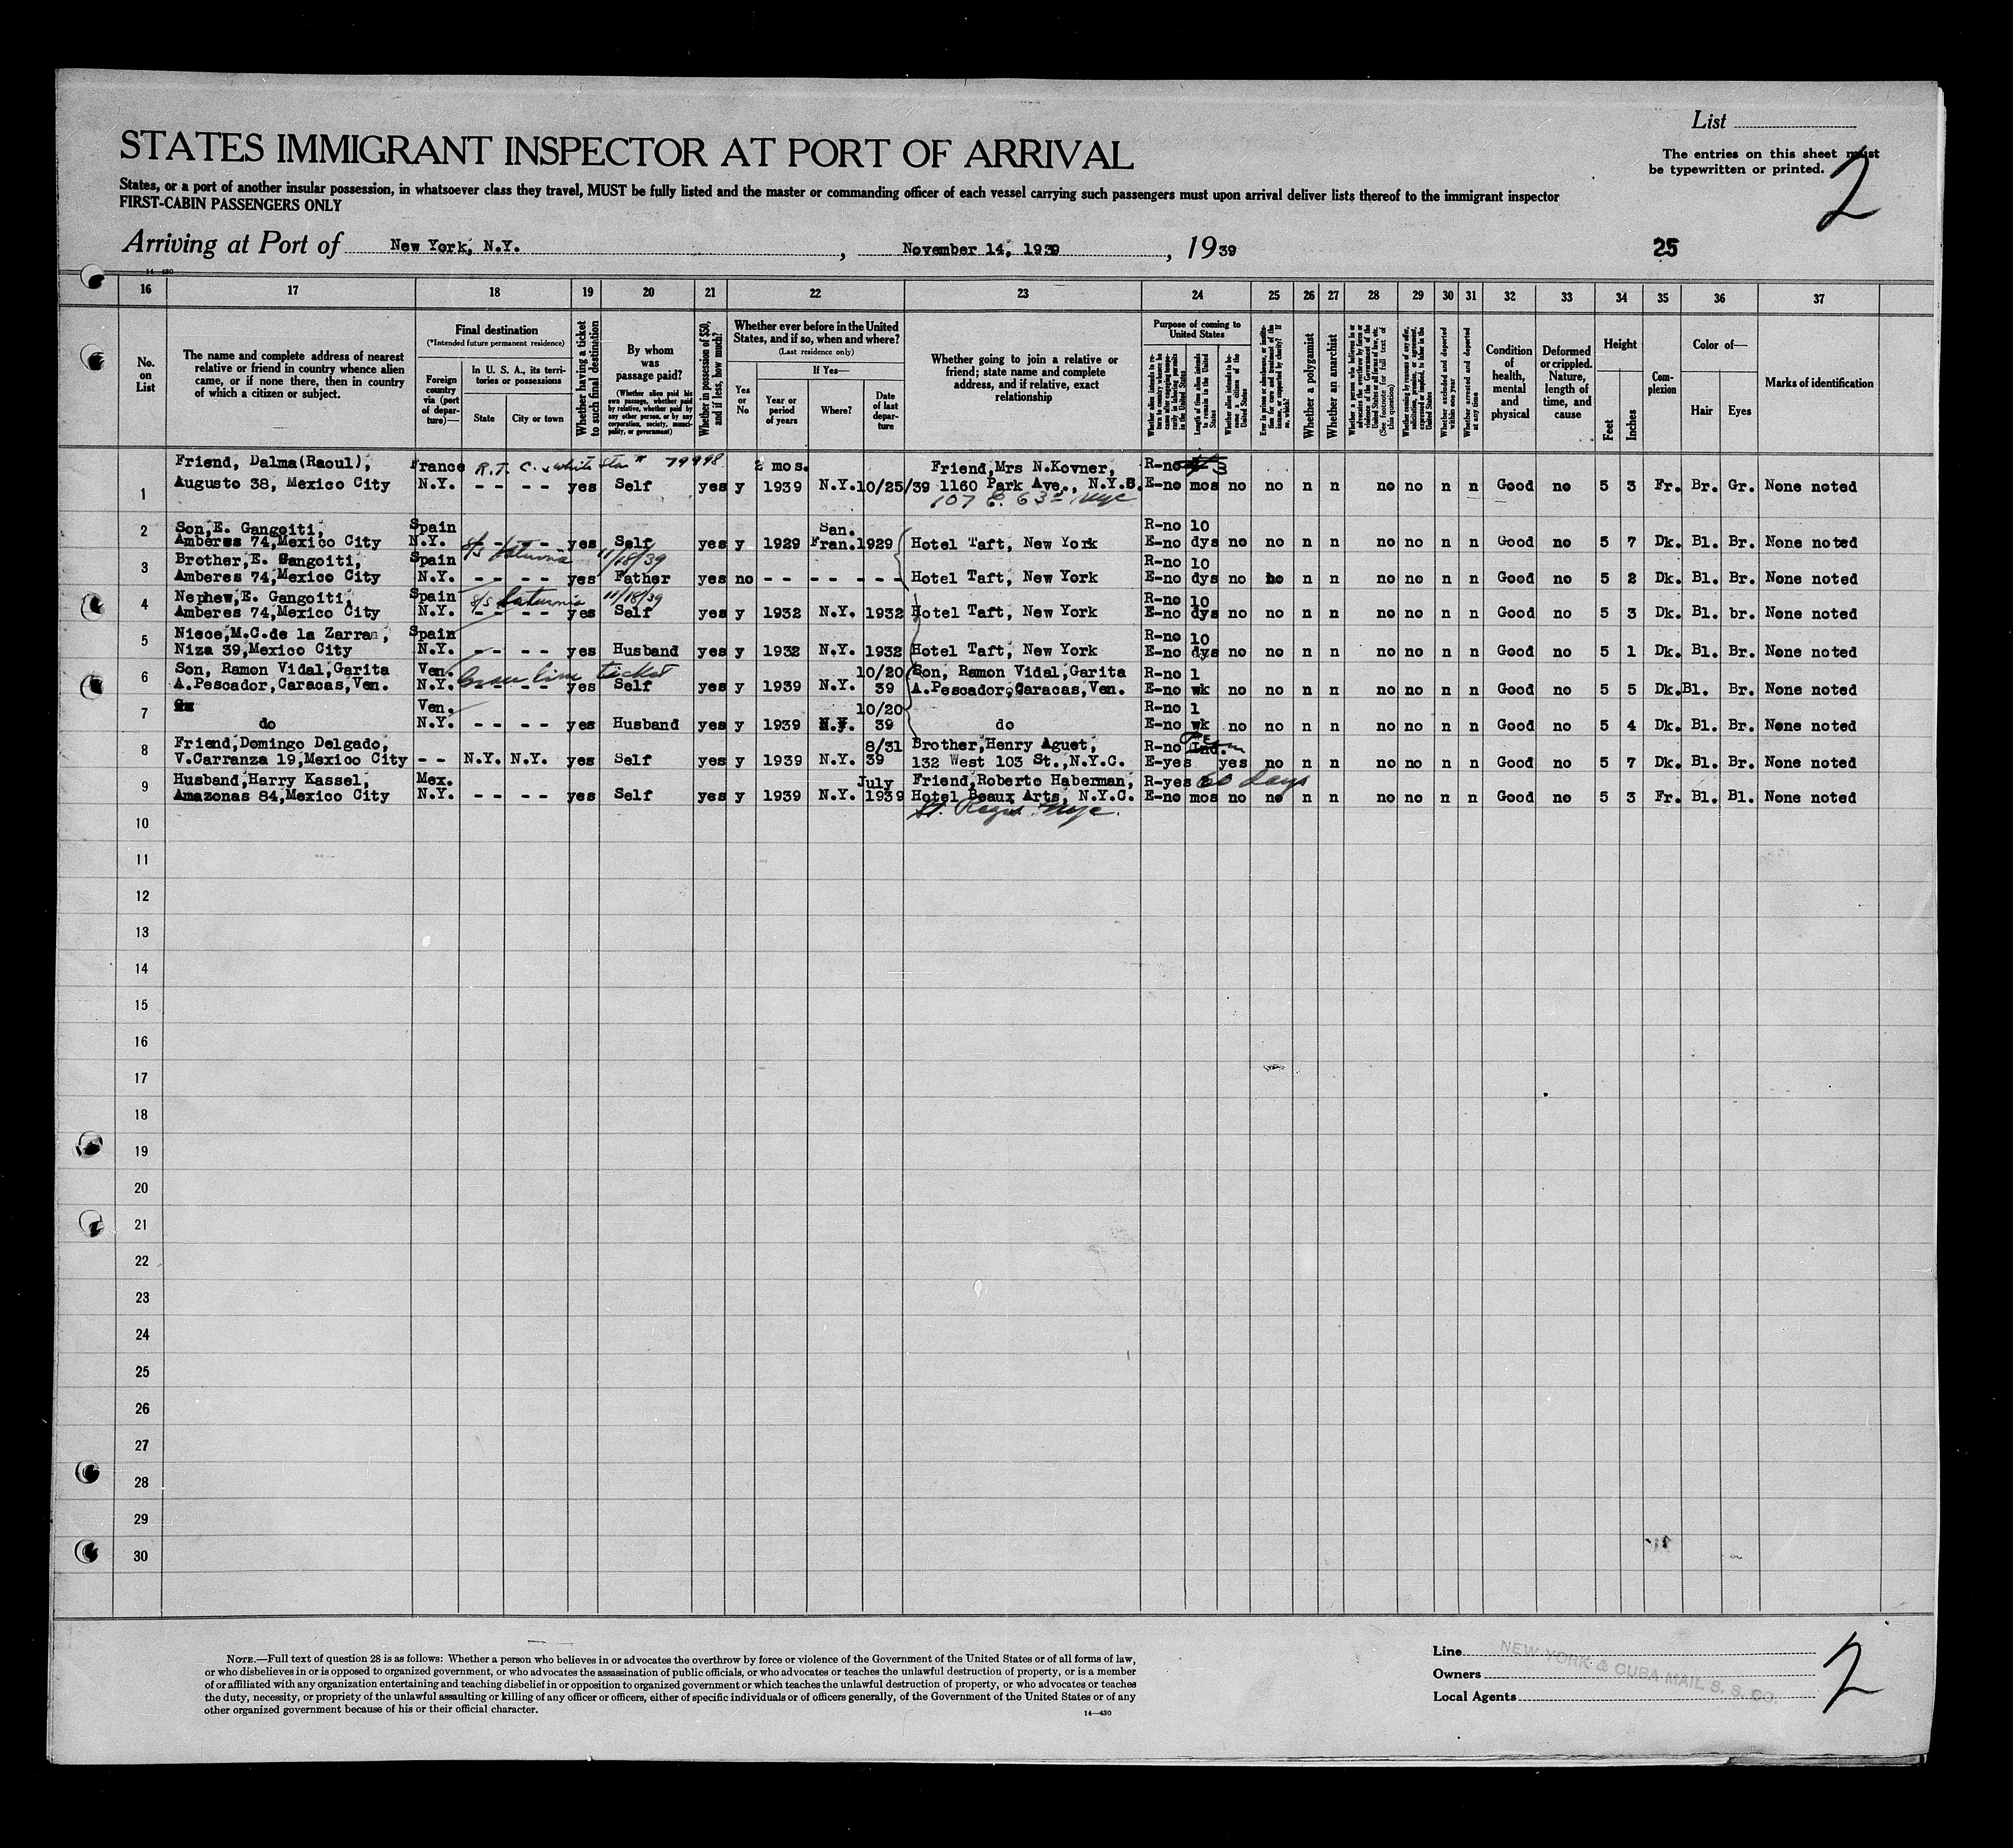 List
STATES IMMIGRANT INSPECTOR AT PORT OF ARRIVAL
The entries on this sheet must
be typewritten or printed.
2
States, or a port of another insular possession, in whatsoever class they travel, MUST be fully listed and the master or commanding officer of each vessel carrying such passengers must upon arrival deliver lists thereof to the immigrant inspector
FIRST-CABIN PASSENGERS ONLY
Arriving at Port of New York, N.Y., November 14, 1939, 1939 25
14—430
16 17 18 19 20 21 22 23 24 25 26 27 28 29 30 31 32 33 34 35 36 37
No. on List
The name and complete address of nearest
relative or friend in country whence alien
came, or if none there, then in country
of which a citizen or subject.
Final destination
(*Intended future permanent residence)
Foreign country via (port of departure)—
In U. S. A., its territories or possessions
State
City or town
Whether having a ticket to such final destination
By whom was passage paid?
(Whether alien paid his own passage, whether paid by relative, whether paid by any other person, or by any corporation, society, municipality, or government)
Whether in possession of $50, and if less, how much?
Whether ever before in the United States, and if so, when and where?
(Last residence only)
Yes or No
If Yes—
Year or period of years
Where?
Date of last departure
Whether going to join a relative or
friend; state name and complete
address, and if relative, exact
relationship
Purpose of coming to United States
Length of time alien intends to remain in the United States
Whether alien intends to become a citizen of the United States
Whether a polygamist
Whether an anarchist
(See footnote for full text of this question)
Whether excluded and deported within one year
Whether arrested and deported at any time
Condition of health, mental and physical
Deformed or crippled. Nature, length of time, and cause
Height
Feet
Inches
Complexion
Color of—
Hair
Eyes
Marks of identification
Friend, Dalma(Raoul), France R.T. C. White Star # 79998 2 mos. Friend,Mrs N.Kovner, R-no 3
1 Augusto 38, Mexico City N.Y. - - - - yes Self yes y 1939 N.Y. 10/25/39 1160 Park Ave., N.Y.S. E-no mos no no n n no no n n Good no 5 3 Fr. Br. Gr. None noted
107 E. 63rd, Nyc
2 Son,E. Gangoiti, Spain San. R-no 10
Amberes 74,Mexico City N.Y. - - - - yes Self yes y 1929 Fran. 1929 Hotel Taft, New York E-no dys no no n n no no n n Good no 5 7 Dk. Bl. Br. None noted
S/S Saturnia 11/18/39
3 Brother,E. Gangoiti, Spain R-no 10
Amberes 74,Mexico City N.Y. - - - - yes Father yes no - - - - - - - Hotel Taft, New York E-no dys no no n n no no n n Good no 5 2 Dk. Bl. Br. None noted
4 Nephew,E. Gangoiti, Spain S/S Saturnia 11/18/39 R-no 10
Amberes 74,Mexico City N.Y. - - - - yes Self yes y 1932 N.Y. 1932 Hotel Taft, New York E-no dys no no n n no no n n Good no 5 3 Dk. Bl. br. None noted
5 Niece,M.C.de la Zarraa, Spain R-no 10
Niza 39,Mexico City N.Y. - - - - yes Husband yes y 1932 N.Y. 1932 Hotel Taft, New York E-no dys no no n n no no n n Good no 5 1 Dk. Bl. Br. None noted
6 Son, Ramon Vidal,Garita Ven. line ticket 10/20 Son, Ramon Vidal,Garita R-no 1
A.Pescador,Caracas,Ven. N.Y. - - - - yes Self yes y 1939 N.Y. 39 A.Pescador,Caracas,Ven. E-no wk no no n n no no n n Good no 5 5 Dk. Bl. Br. None noted
7 Ven. 10/20 R-no 1
do N.Y. - - - - yes Husband yes y 1939 N.Y. 39 do E-no wk no no n n no no n n Good no 5 4 Dk. Bl. Br. None noted
8 Friend,Domingo Delgado, 8/31 Brother,Henry Aguet, R-no Ind.
V.Carranza 19,Mexico City - - N.Y. N.Y. yes Self yes y 1939 N.Y. 39 132 West 103 St.,N.Y.C. E-yes yes no n n no no n n Good no 5 7 Dk. Bl. Br. None noted
9 Husband,Harry Kassel, Mex. July Friend,Roberto Haberman, R-yes 60 days
Amazonas 84,Mexico City N.Y. - - - - yes Self yes y 1939 N.Y. 1939 Hotel Beaux Arts, N.Y.C. E-no mos no no n n no no n n Good no 5 3 Fr. Bl. Bl. None noted
St. Regis Nyc.
10
11
12
13
14
15
16
17
18
19
20
21
22
23
24
25
26
27
28
29
30
NOTE.—Full text of question 28 is as follows: Whether a person who believes in or advocates the overthrow by force or violence of the Government of the United States or of all forms of law,
or who disbelieves in or is opposed to organized government, or who advocates the assassination of public officials, or who advocates or teaches the unlawful destruction of property, or is a member
of or affiliated with any organization entertaining and teaching disbelief in or opposition to organized government or which teaches the unlawful destruction of property, or who advocates or teaches
the duty, necessity, or propriety of the unlawful assaulting or killing of any officer or officers, either of specific individuals or of officers generally, of the Government of the United States or of any
other organized government because of his or their official character.
14—430
Line
Owners
Local Agents
NEW YORK & CUBA MAIL S. S. CO.
2